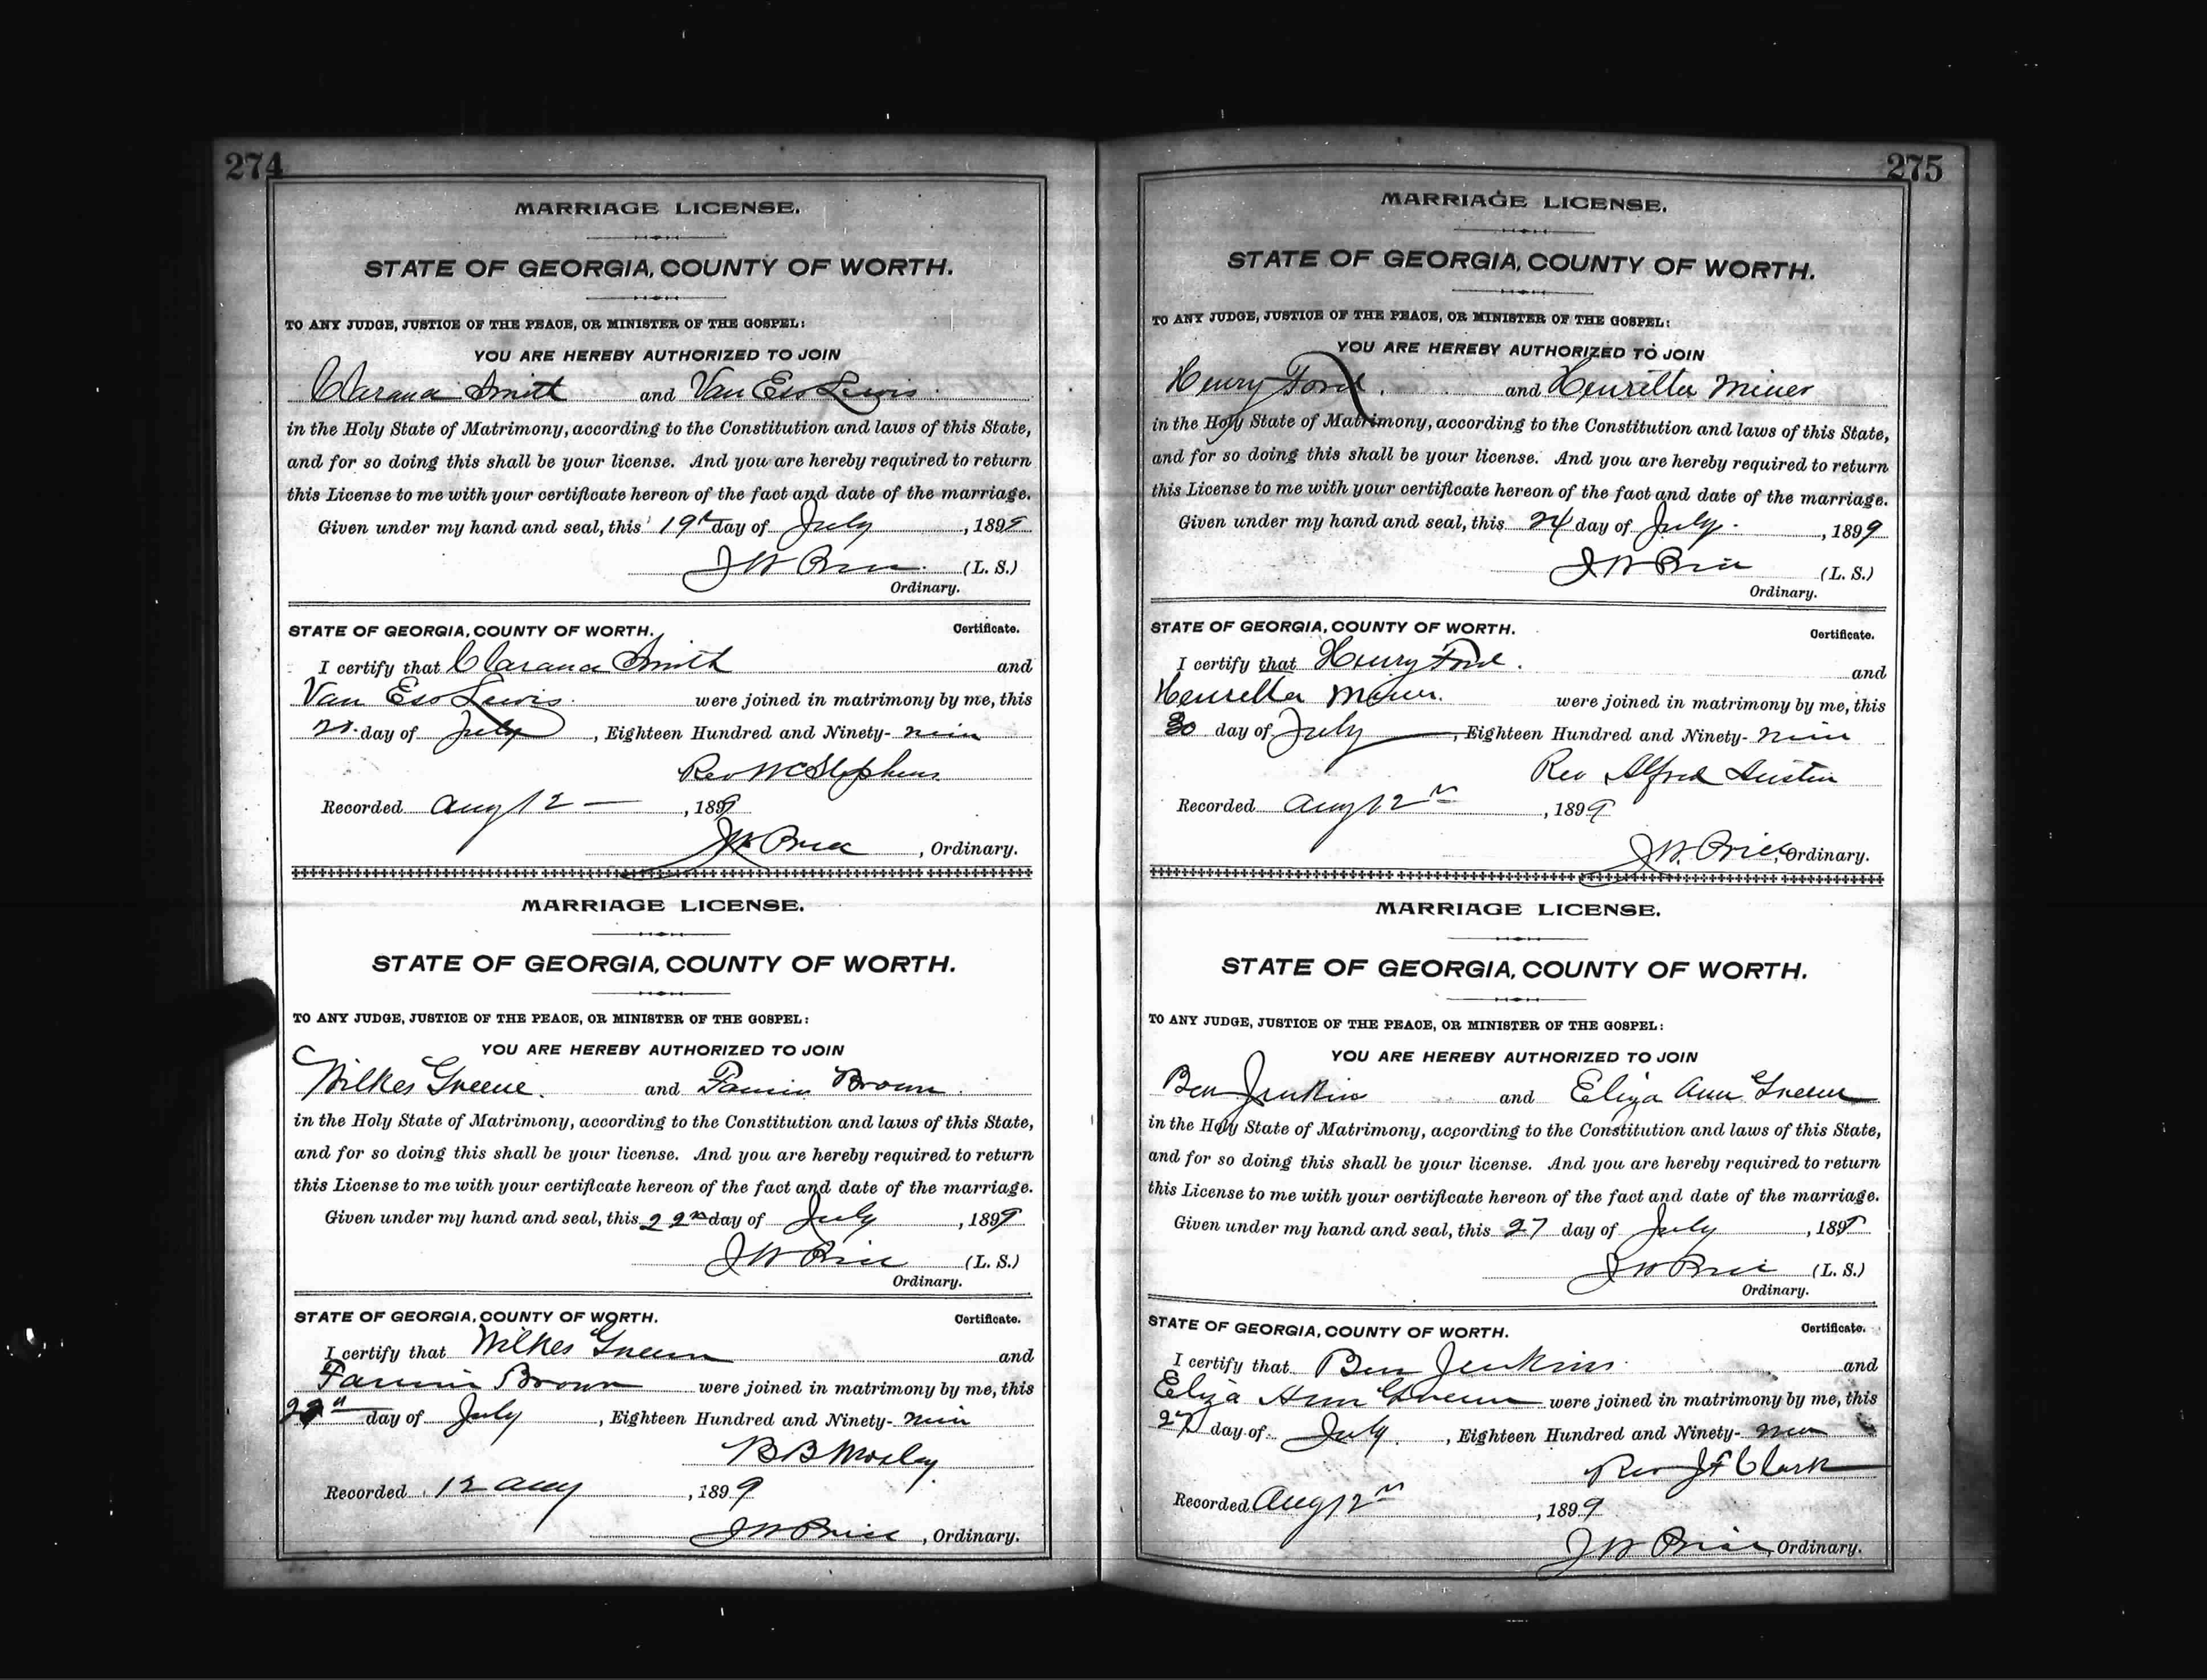 274
MARRIAGE LICENSE.
STATE OF GEORGIA, COUNTY OF WORTH.
TO ANY JUDGE, JUSTICE OF THE PEACE, OR MINISTER OF THE GOSPEL:
YOU ARE HEREBY AUTHORIZED TO JOIN
Smith and Van Ess Lewis
in the Holy State of Matrimony, according to the Constitution and laws of this State,
and for so doing this shall be your license. And you are hereby required to return
this License to me with your certificate hereon of the fact and date of the marriage.
Given under my hand and seal, this 19th day of July, 1899
J W Price (L. S.)
Ordinary.
STATE OF GEORGIA, COUNTY OF WORTH. Certificate.
I certify that Smith and
Van Ess Lewis were joined in matrimony by me, this
day of July, Eighteen Hundred and Ninety-nine
Rev W C Stephens
Recorded Aug 12 —, 1899
J W Price, Ordinary.
MARRIAGE LICENSE.
STATE OF GEORGIA, COUNTY OF WORTH.
TO ANY JUDGE, JUSTICE OF THE PEACE, OR MINISTER OF THE GOSPEL:
YOU ARE HEREBY AUTHORIZED TO JOIN
Wilkes Greene. and Fannie Brown.
in the Holy State of Matrimony, according to the Constitution and laws of this State,
and for so doing this shall be your license. And you are hereby required to return
this License to me with your certificate hereon of the fact and date of the marriage.
Given under my hand and seal, this 22nd day of July, 1899
J W Price (L. S.)
Ordinary.
STATE OF GEORGIA, COUNTY OF WORTH. Certificate.
I certify that Wilkes Green and
Fannie Brown were joined in matrimony by me, this
day of July, Eighteen Hundred and Ninety-nine
B B Mosley
Recorded 12 Aug, 1899
J W Price, Ordinary.
275
MARRIAGE LICENSE.
STATE OF GEORGIA, COUNTY OF WORTH.
TO ANY JUDGE, JUSTICE OF THE PEACE, OR MINISTER OF THE GOSPEL:
YOU ARE HEREBY AUTHORIZED TO JOIN
Henry Ford. and Henretta Miner
in the Holy State of Matrimony, according to the Constitution and laws of this State,
and for so doing this shall be your license. And you are hereby required to return
this License to me with your certificate hereon of the fact and date of the marriage.
Given under my hand and seal, this 24 day of July, 1899
J W Price (L. S.)
Ordinary.
STATE OF GEORGIA, COUNTY OF WORTH. Certificate.
I certify that Henry Ford. and
Henretta Miner. were joined in matrimony by me, this
30 day of July, Eighteen Hundred and Ninety-nine
Rev Alfred Austin
Recorded Aug 12th, 1899
J W. Price, Ordinary.
MARRIAGE LICENSE.
STATE OF GEORGIA, COUNTY OF WORTH.
TO ANY JUDGE, JUSTICE OF THE PEACE, OR MINISTER OF THE GOSPEL:
YOU ARE HEREBY AUTHORIZED TO JOIN
Ben Jenkins and Eliza Ann Green
in the Holy State of Matrimony, according to the Constitution and laws of this State,
and for so doing this shall be your license. And you are hereby required to return
this License to me with your certificate hereon of the fact and date of the marriage.
Given under my hand and seal, this 27 day of July, 1899
J W Price (L. S.)
Ordinary.
STATE OF GEORGIA, COUNTY OF WORTH. Certificate.
I certify that Ben Jenkins and
Eliza Ann Green were joined in matrimony by me, this
27 day of July, Eighteen Hundred and Ninety-nine
Rev J F Clark
Recorded Aug 12th, 1899
J W Price, Ordinary.